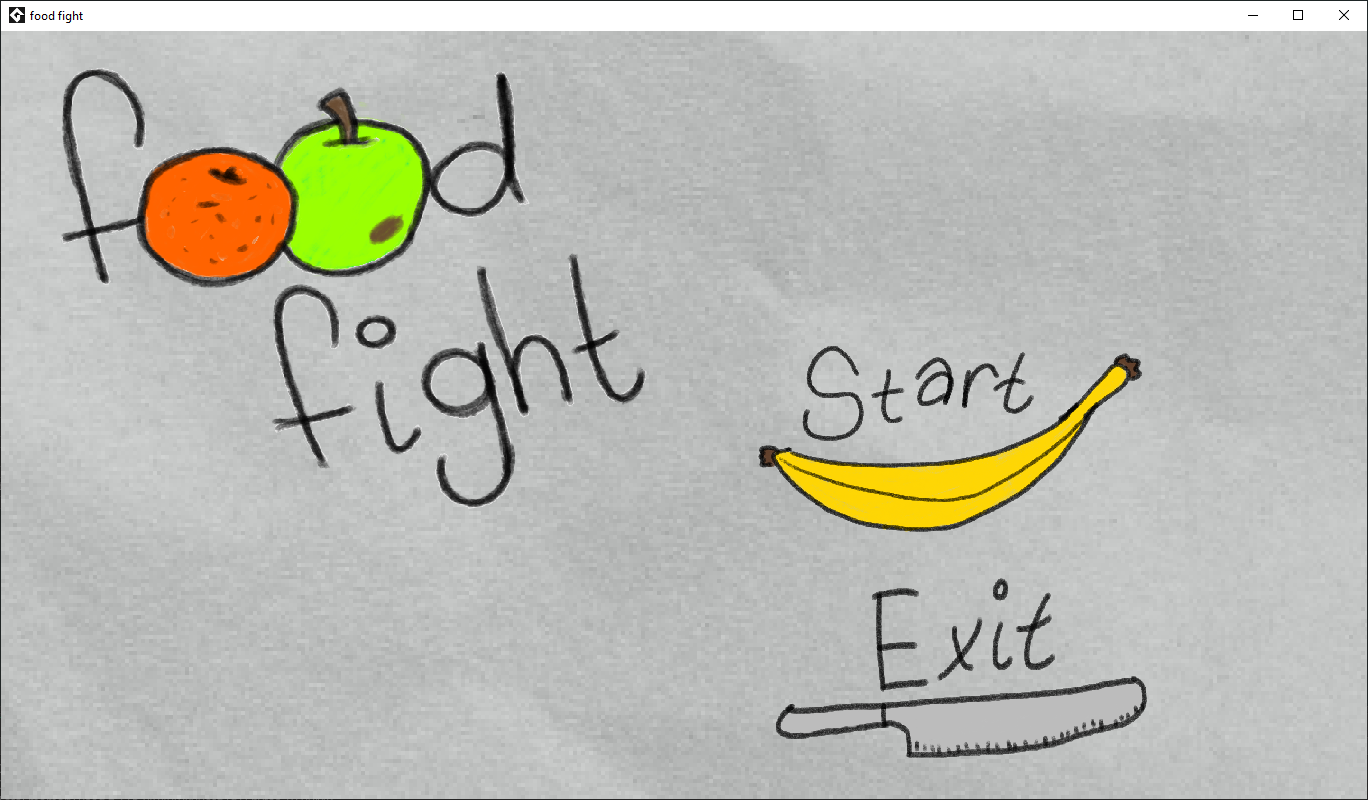 food fight
food
fight
Start
Exit